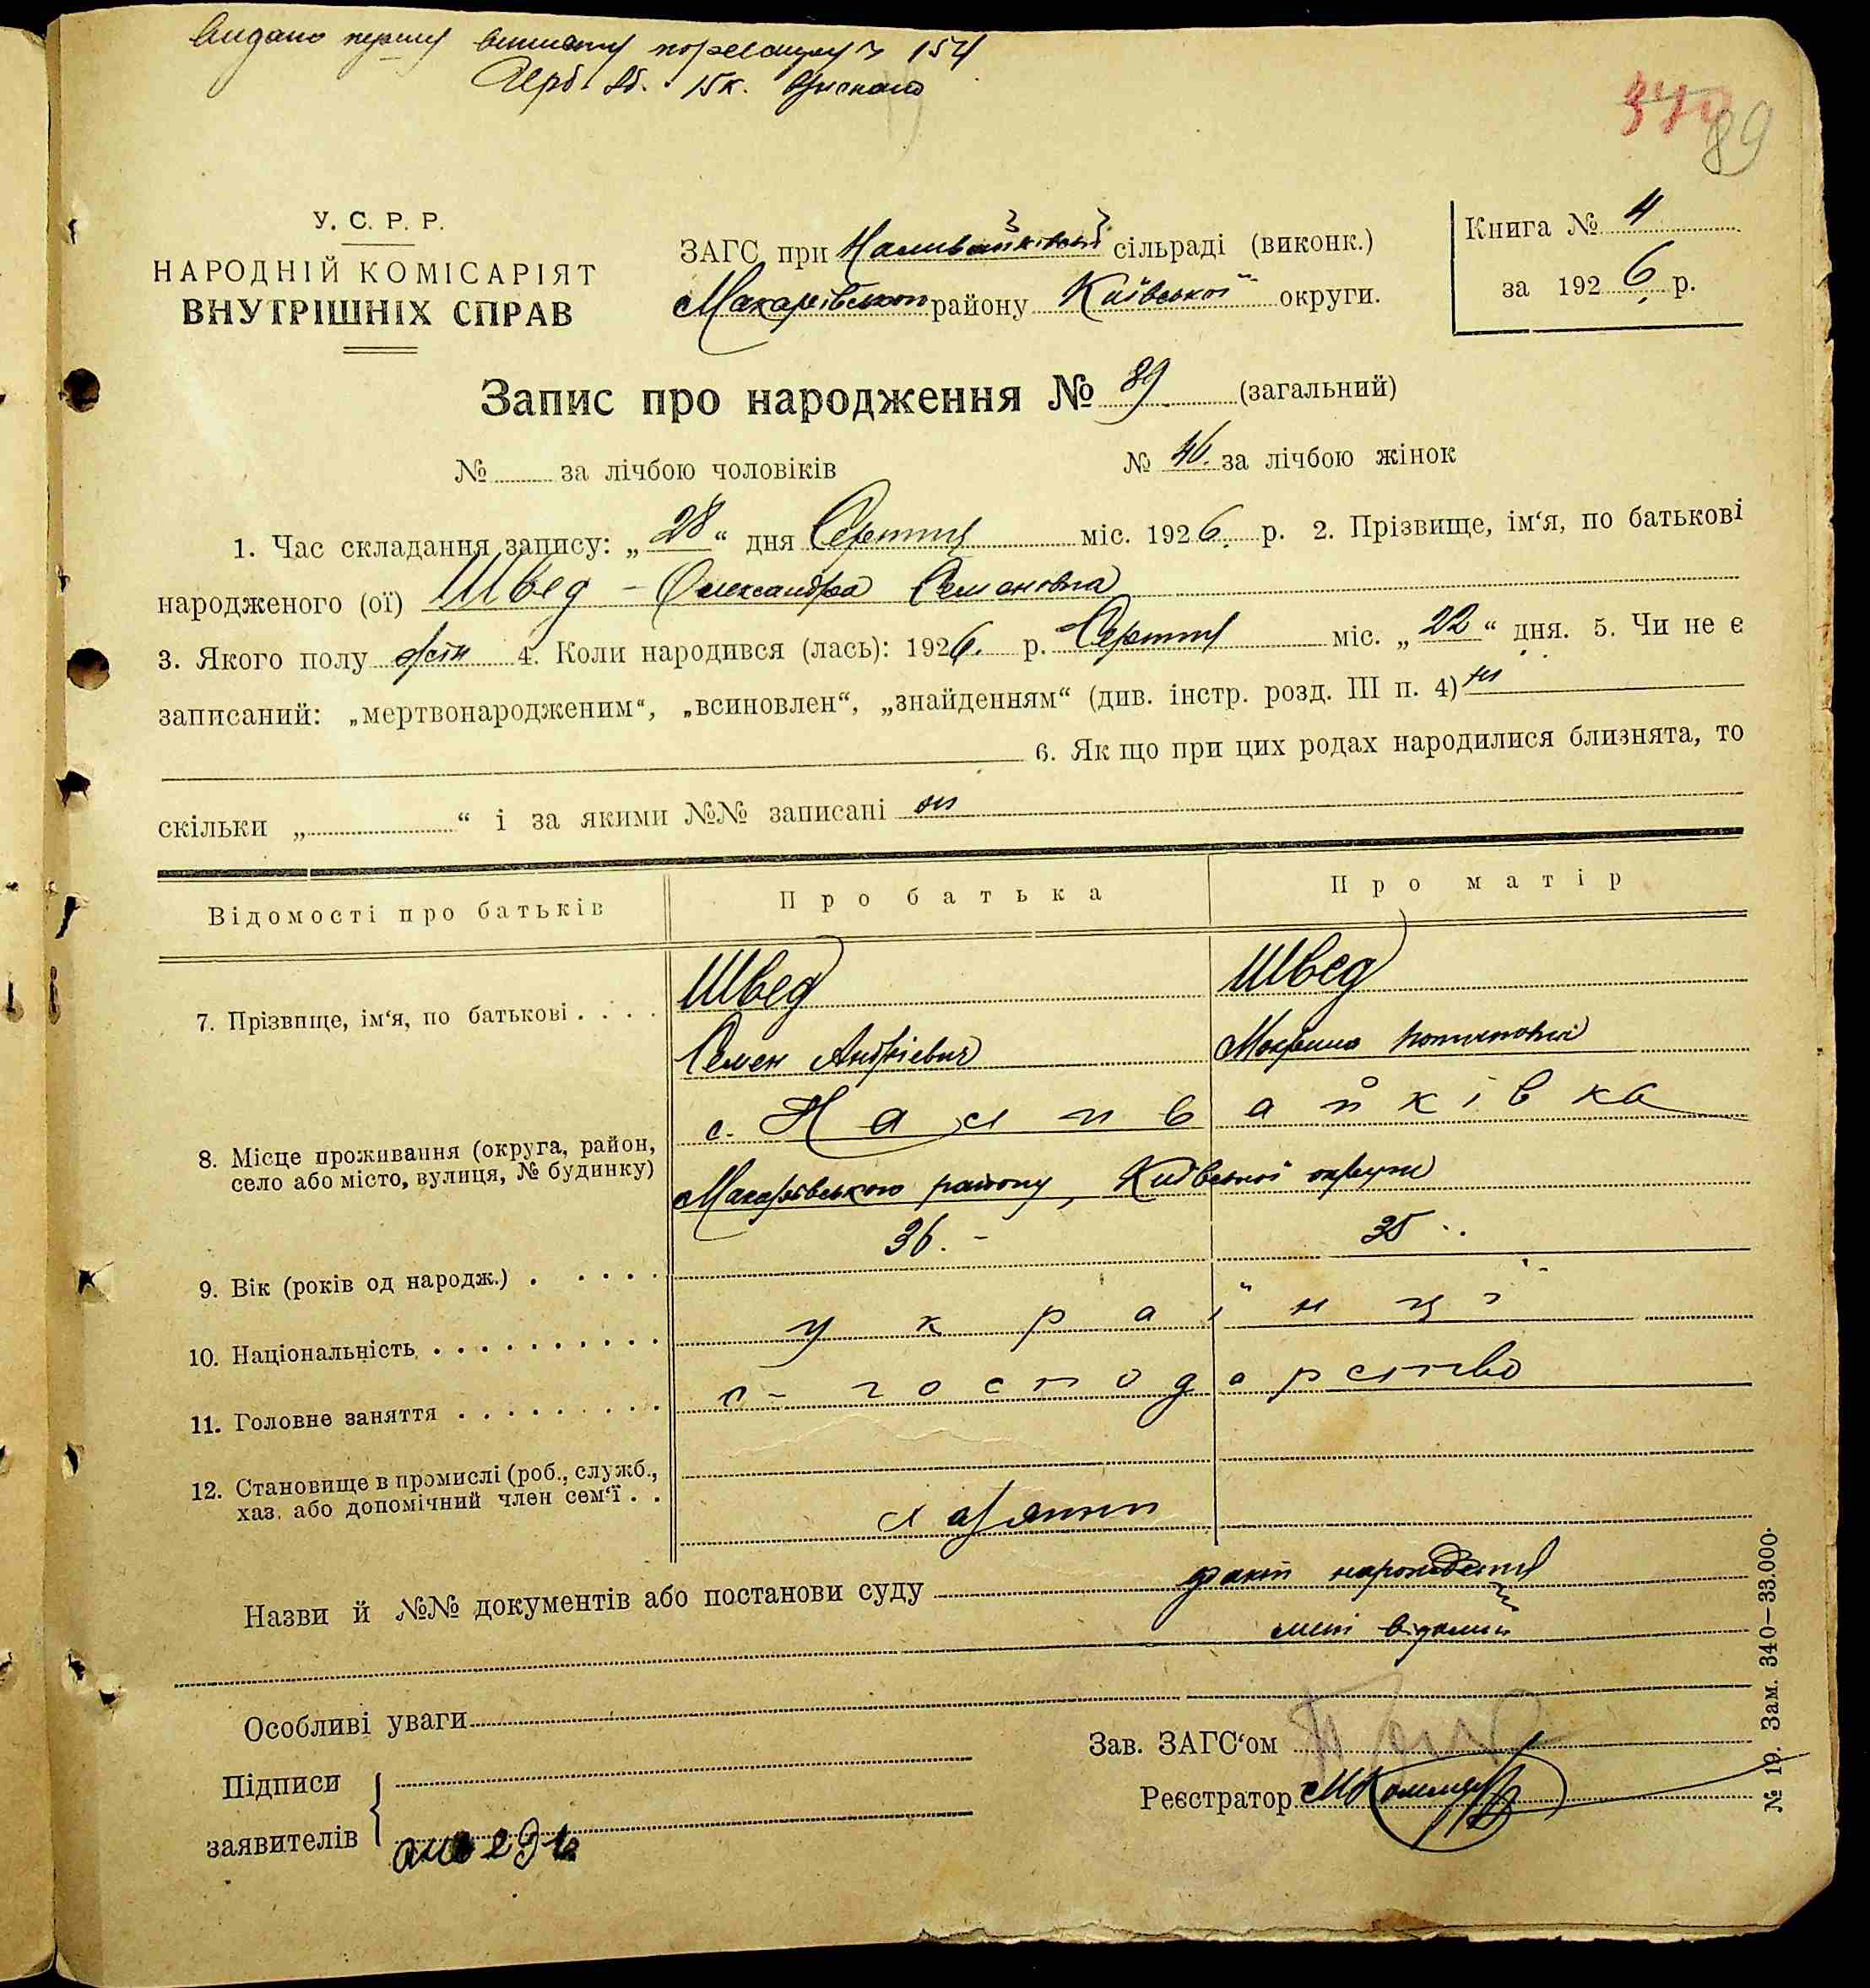 Видано першу виписку 154
Герб. 15к.
89
У. С. Р. Р.
НАРОДНІЙ КОМІСАРІЯТ
ВНУТРІШНІХ СПРАВ
ЗАГС при Наливайківській сільраді (виконк.)
Макарівського району Київської округи.
Книга № 4
за 1926 р.
Запис про народження № 89 (загальний)
№ за лічбою чоловіків № 46. за лічбою жінок
1. Час складання запису: „28“ дня Серпня міс. 1926. р. 2. Прізвище, ім‘я, по батькові
народженого (ої) Швед - Олександра Семеновна
3. Якого полу жін 4. Коли народився (лась): 1926. р. Серпня міс. „22“ дня. 5. Чи не є
записаний: „мертвонародженим“, „всиновлен“, „знайденням“ (див. інстр. розд. III п. 4) ні
6. Як що при цих родах народилися близнята, то
скільки „ “ і за якими №№ записані ні
Відомості про батьків Про батька Про матір
7. Прізвище, ім‘я, по батькові . . . . Швед Швед
Семен Андрієвич Мокрина
8. Місце проживання (округа, район,
село або місто, вулиця, № будинку)
с. Наливайківка
Макарівського району, Київської округи
9. Вік (років од народж.) . . . . . 36. - 35
10. Національність . . . . . . . . . . українці
11. Головне заняття . . . . . . . . . с-господарство
12. Становище в промислі (роб., служб.,
хаз. або допомічний член сем‘ї . .
Назви й №№ документів або постанови суду факт народження
мені відомий
Особливі уваги
Зав. ЗАГС‘ом
Підписи
заявителів
Реєстратор
№ 19. Зам. 340—33.000.